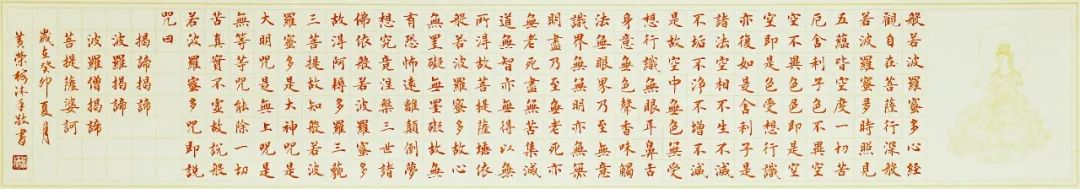 般若波羅蜜多心經
觀自在菩薩行深般
若波羅蜜多時照見
五蘊皆空度一切苦
厄舍利子色不異空
空不異色色即是空
空即是色受想行識
亦復如是舍利子是
諸法空相不生不滅
不垢不淨不增不減
是故空中無色無受
想行識無眼耳鼻舌
身意無色聲香味觸
法無眼界乃至無意
識界無無明亦無無
明盡乃至無老死亦
無老死盡無苦集滅
道無智亦無得以無
所得故菩提薩埵依
般若波羅蜜多故心
無罣礙無罣礙故無
有恐怖遠離顛倒夢
想究竟涅槃三世諸
佛依般若波羅蜜多
故得阿耨多羅三藐
三菩提故知般若波
羅蜜多是大神咒是
大明咒是無上咒是
無等等咒能除一切
苦真實不虛故說般
若波羅蜜多咒即說
咒曰
揭諦揭諦
波羅揭諦
波羅僧揭諦
菩提薩婆訶
歲在癸卯夏月
黃榮沐手敬書